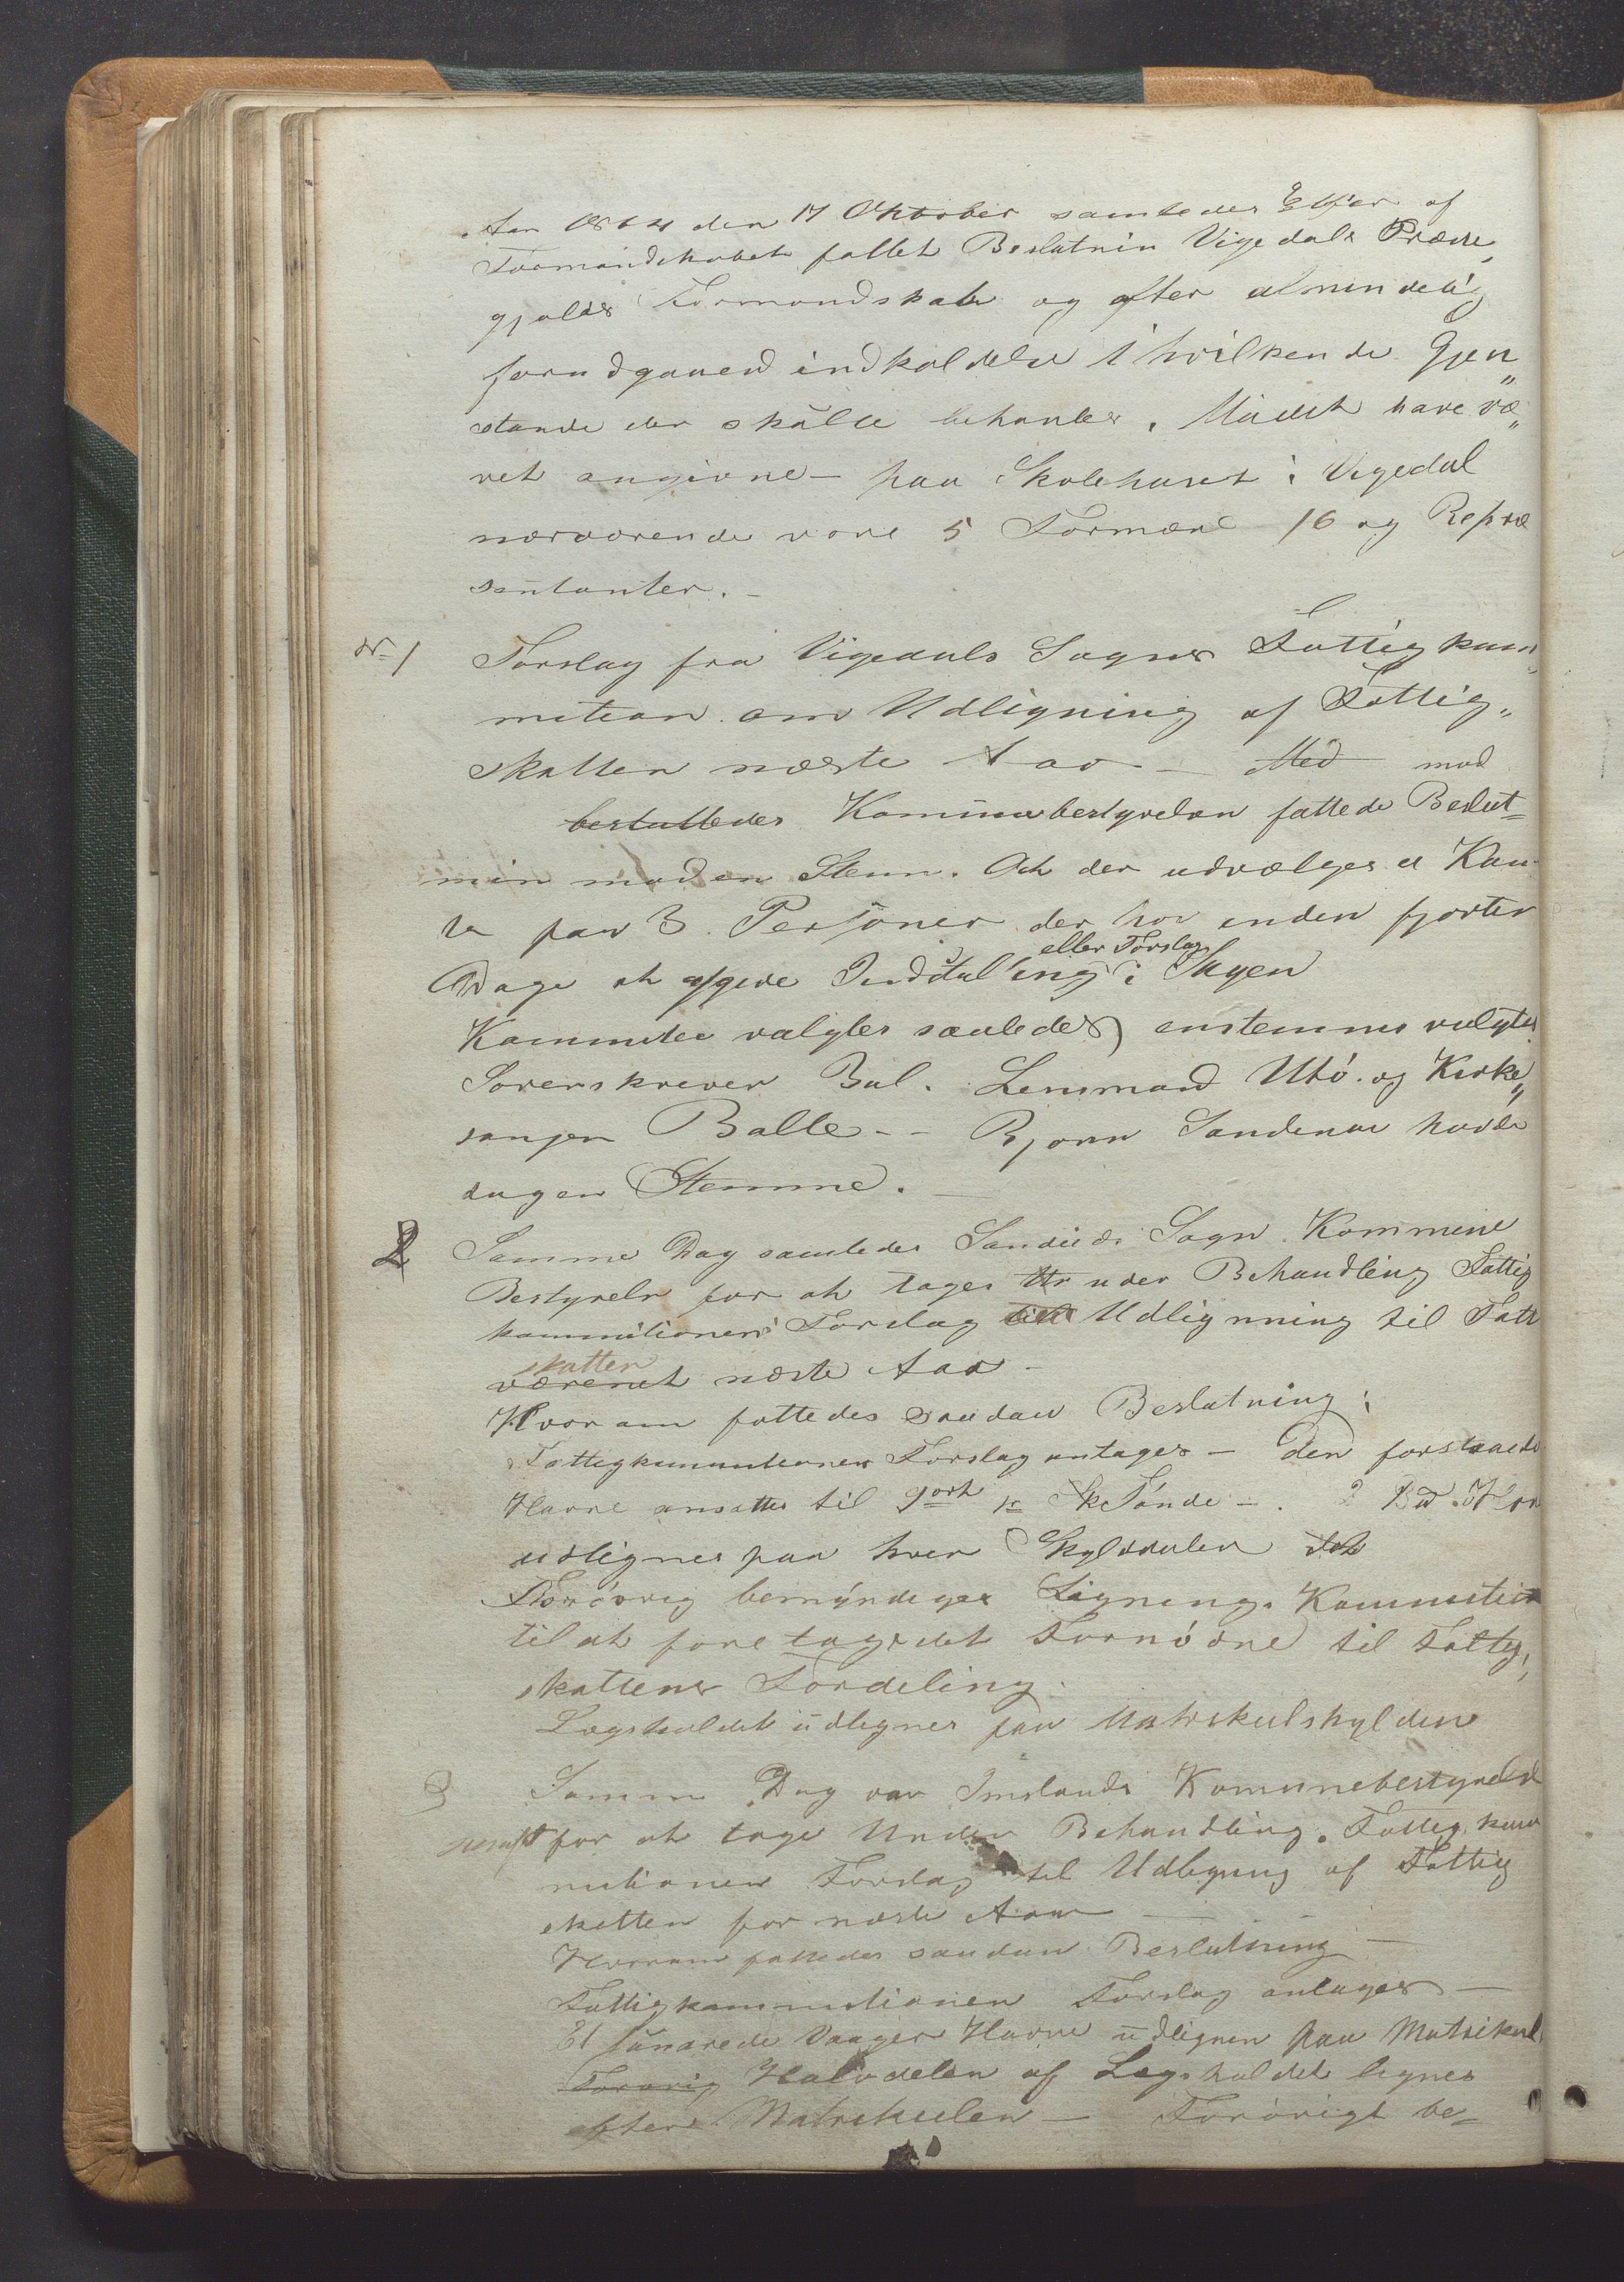 Aar 1864 den 17 Oktober samledes Efter af
Formandskabet fattet Beslutnin Vigedals Præste,
gjalds Formandskab og efter almindelig
forudgaaend indkaldelse i hvilken de Gjen„
stande der skulle behanles. Mådet have væ„
ret angivne — paa Skolehuset i Vigedal
nærværende vare 5 Formænd 16 og Repræ
sentanter. —
N 1 Forslag fra Vigedals Sogns Fattigkom„
mition om Udligning af Fattig„
skatten næste Aar — Med mod
bestuttedes Kommunebestyrelsen fattede Beslut=
nin mod en Stem. At der udvælges et Kom
te paa 3 Personer der har inden fjorten
Dage at afgive Indstalling i Sagen
eller Forslag
Kommitee valgtes saaledes) enstemmes valgtes
Sorenskrever Bul. Lensmand Utö. og Kirke„
sanger Balle — Bjorn Sandenæ havde
dagen Stemme. —
2 Samme Dag samledes Sandeids Sogn Kommune
Bestyrelse for at tages under Behandling Fattig
kommitionens Forslag till Udligning til Fatt
skatten
værenet næste Aar —
Hvor om fattedes saadan Beslutning:
Fattigkommitionens Forslag antages — Den forstaaede
Havre ansattes til 9 ort pr Sk Tønde —. 2 Bd. Kor
udlignes paa hver Skylddaler
Forövrig bemyndiges Lignings Kommition
til at foretage det Fornödne til Fattig,
skattens Fordeling.
Lægsholdet udlignes paa Matrikulskylden
3 Samme Dag var Imslands Kommunebestyrelse
for at tage Under Behandling. Fattigkom
mitionen Forslag til Udligning af Fattig
skatten for næste Aar —
Hvorom fattedes saadan Beslutning —
Fattigkommitionen Forslag antages —
Et hunerede Vaager Havre udlignes paa Matrikul
Forovrig Halvdelen af Lægsholdet lignes
efter Matrikulen — Forörigt be=